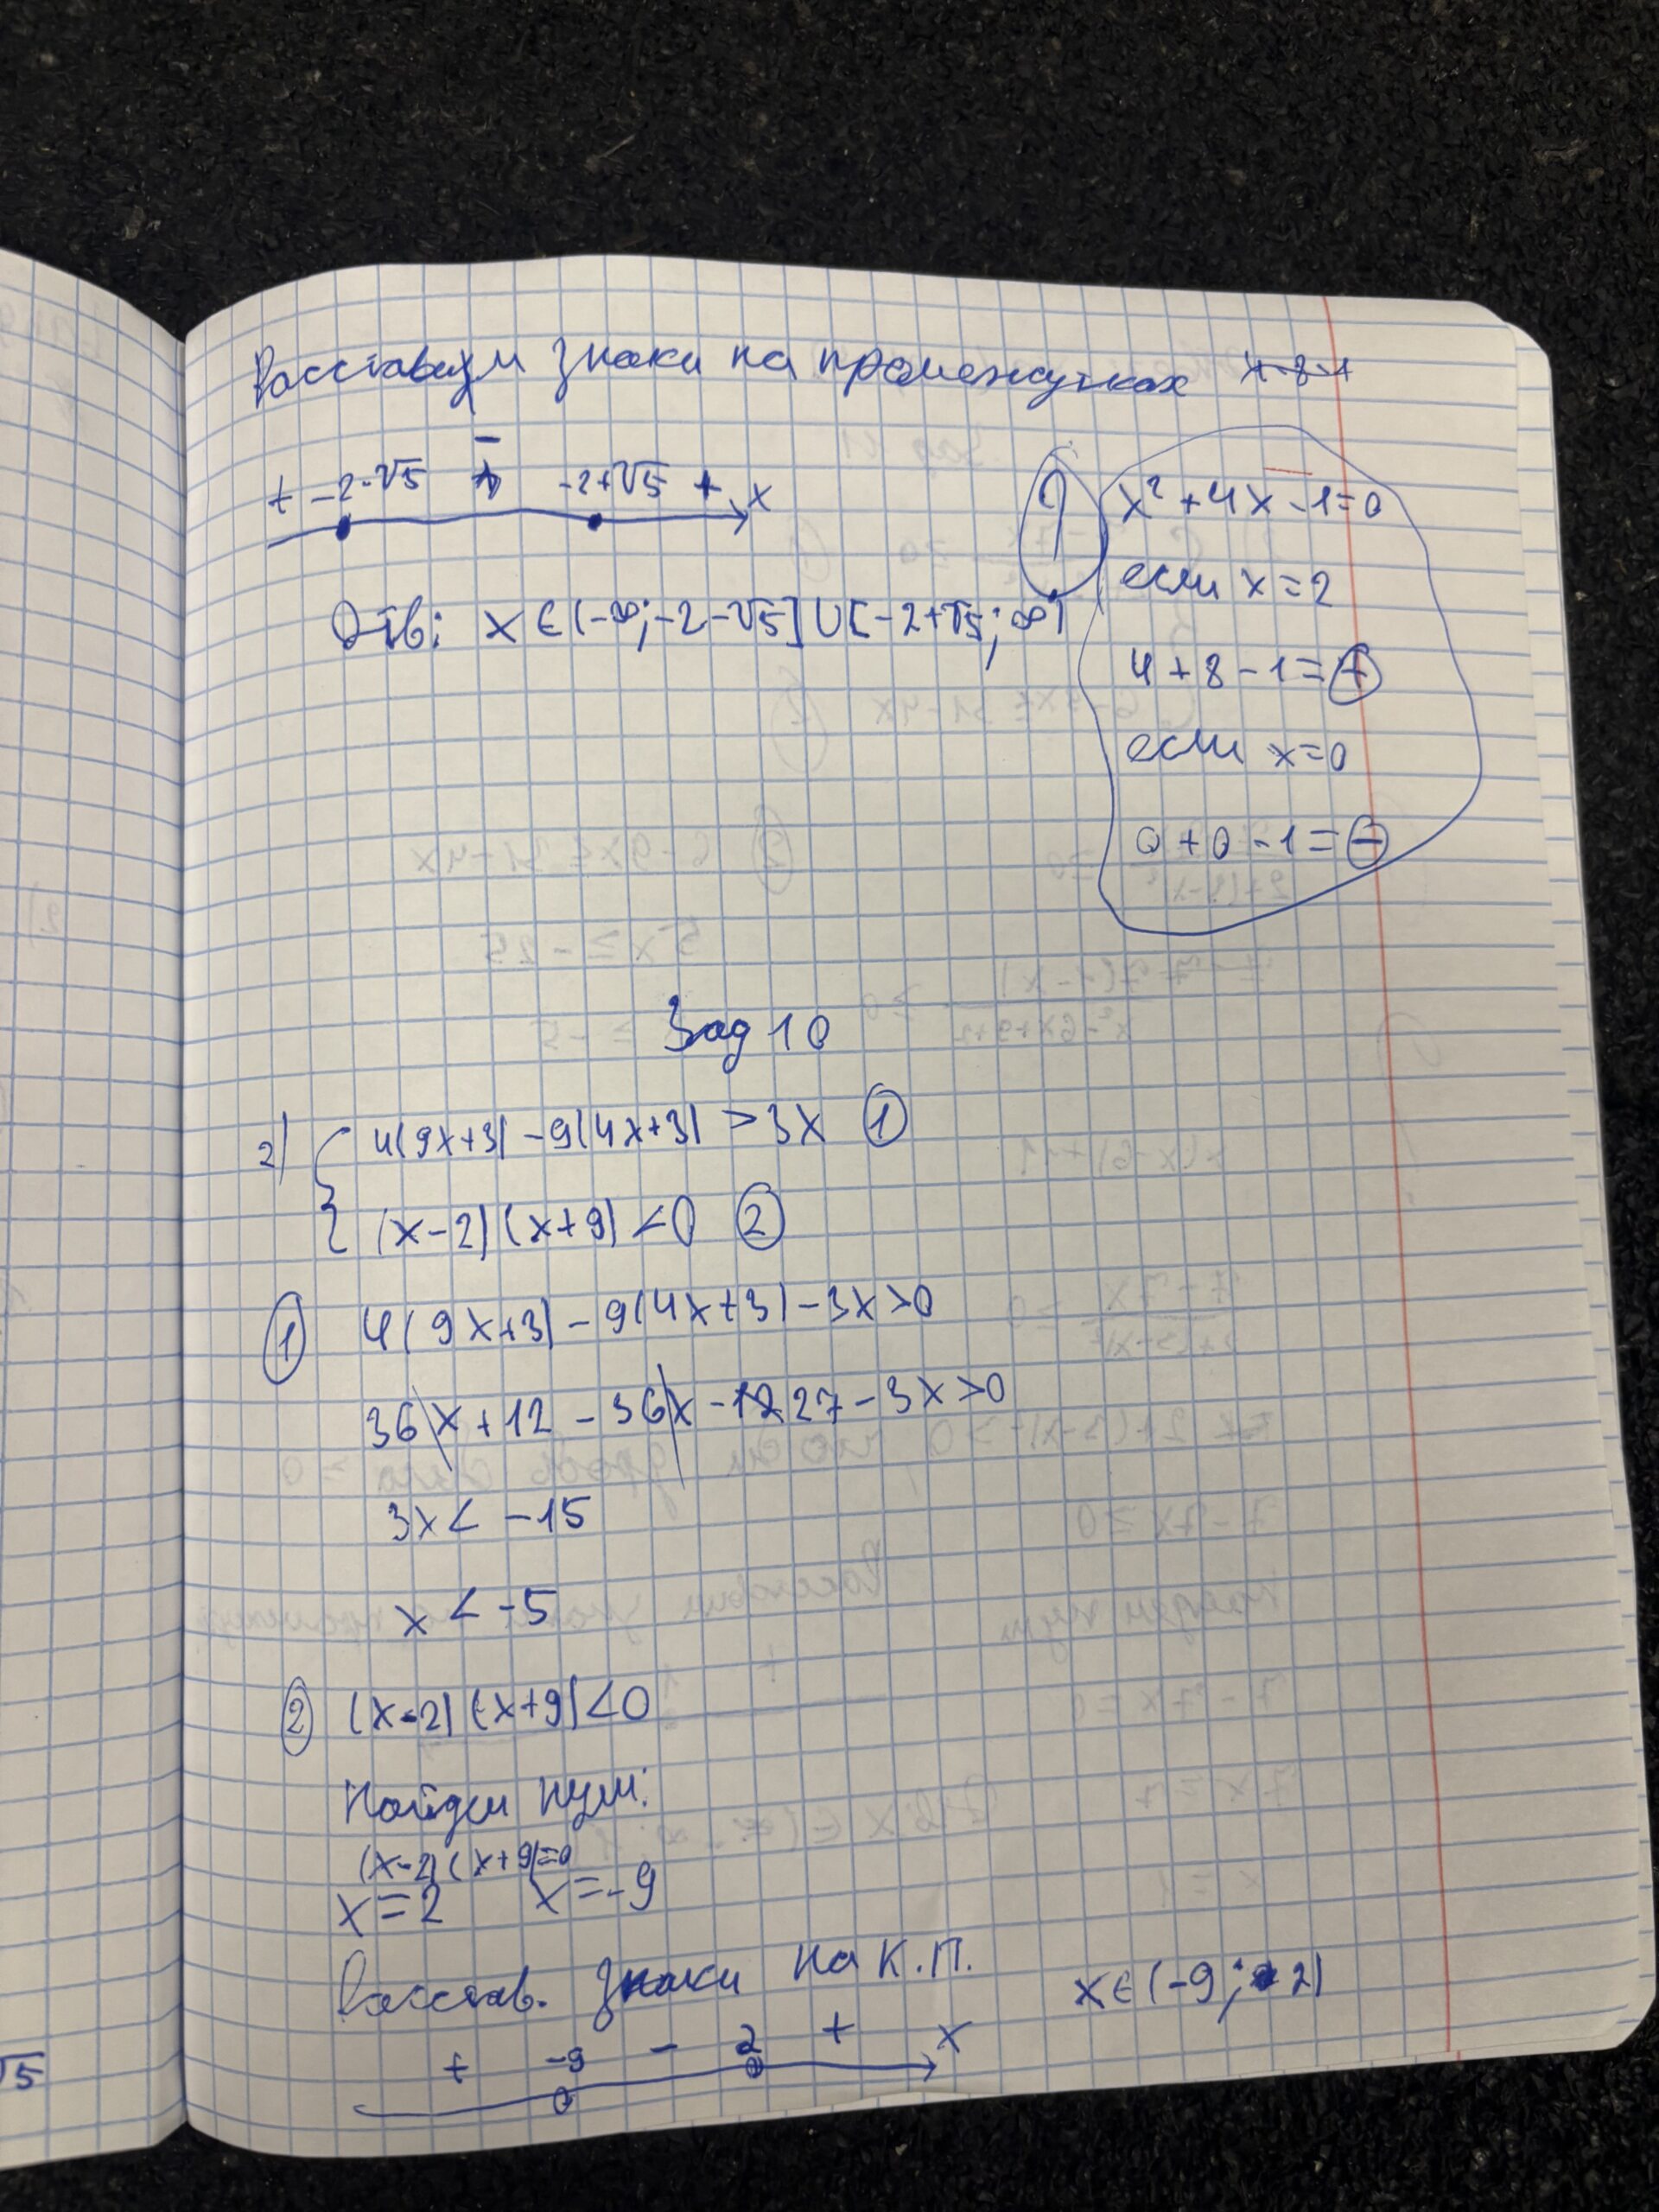 Расставим знаки на промежутках
+ -2-√5 - -2+√5 + x
Отв: x ∈ (-∞; -2-√5] ∪ [-2+√5; ∞)
x² + 4x - 1 = 0
если x = 2
4 + 8 - 1 = +
если x = 0
0 + 0 - 1 = -
Зад 10
2) { 4(9x+3) - 9(4x+3) > 3x ①
(x-2)(x+9) < 0 ②
① 4(9x+3) - 9(4x+3) - 3x > 0
36x + 12 - 36x - 27 - 3x > 0
3x < -15
x < -5
② (x-2)(x+9) < 0
Найдем нули:
(x-2)(x+9)=0
x = 2 x = -9
Расстав. знаки на К.П.
x ∈ (-9; 2)
+ -9 - 2 + x
√5